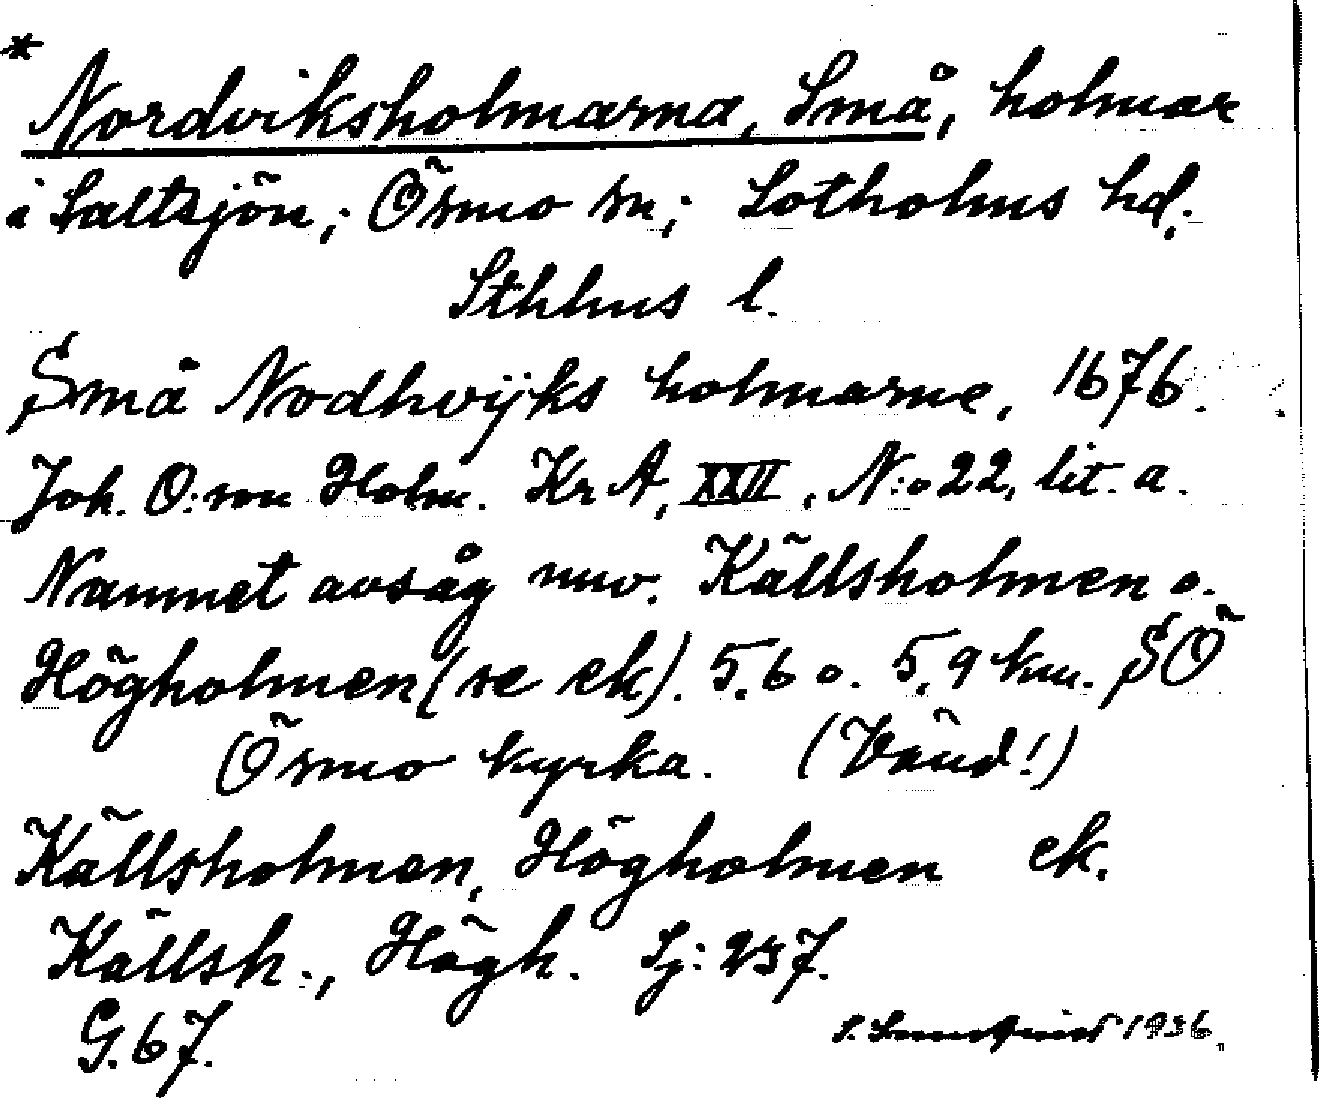 * Nordviksholmarna, Små, holmar
i Saltsjön; Ösmo sn; Sotholms hd.
Sthlms l.
Små Nodhvijks holmarne, 1676.
Joh. O:son Holm. Kr A, XXII, N:o 22, lit. a.
Namnet avsåg nuv. Källsholmen o.
Högholmen (se ek). 5.6 o. 5,9 km. SÖ
Ösmo kyrka. (Vänd!)
Källsholmen, Högholmen ek.
Källsh., Högh. Sj: 237.
G. 67.
1936